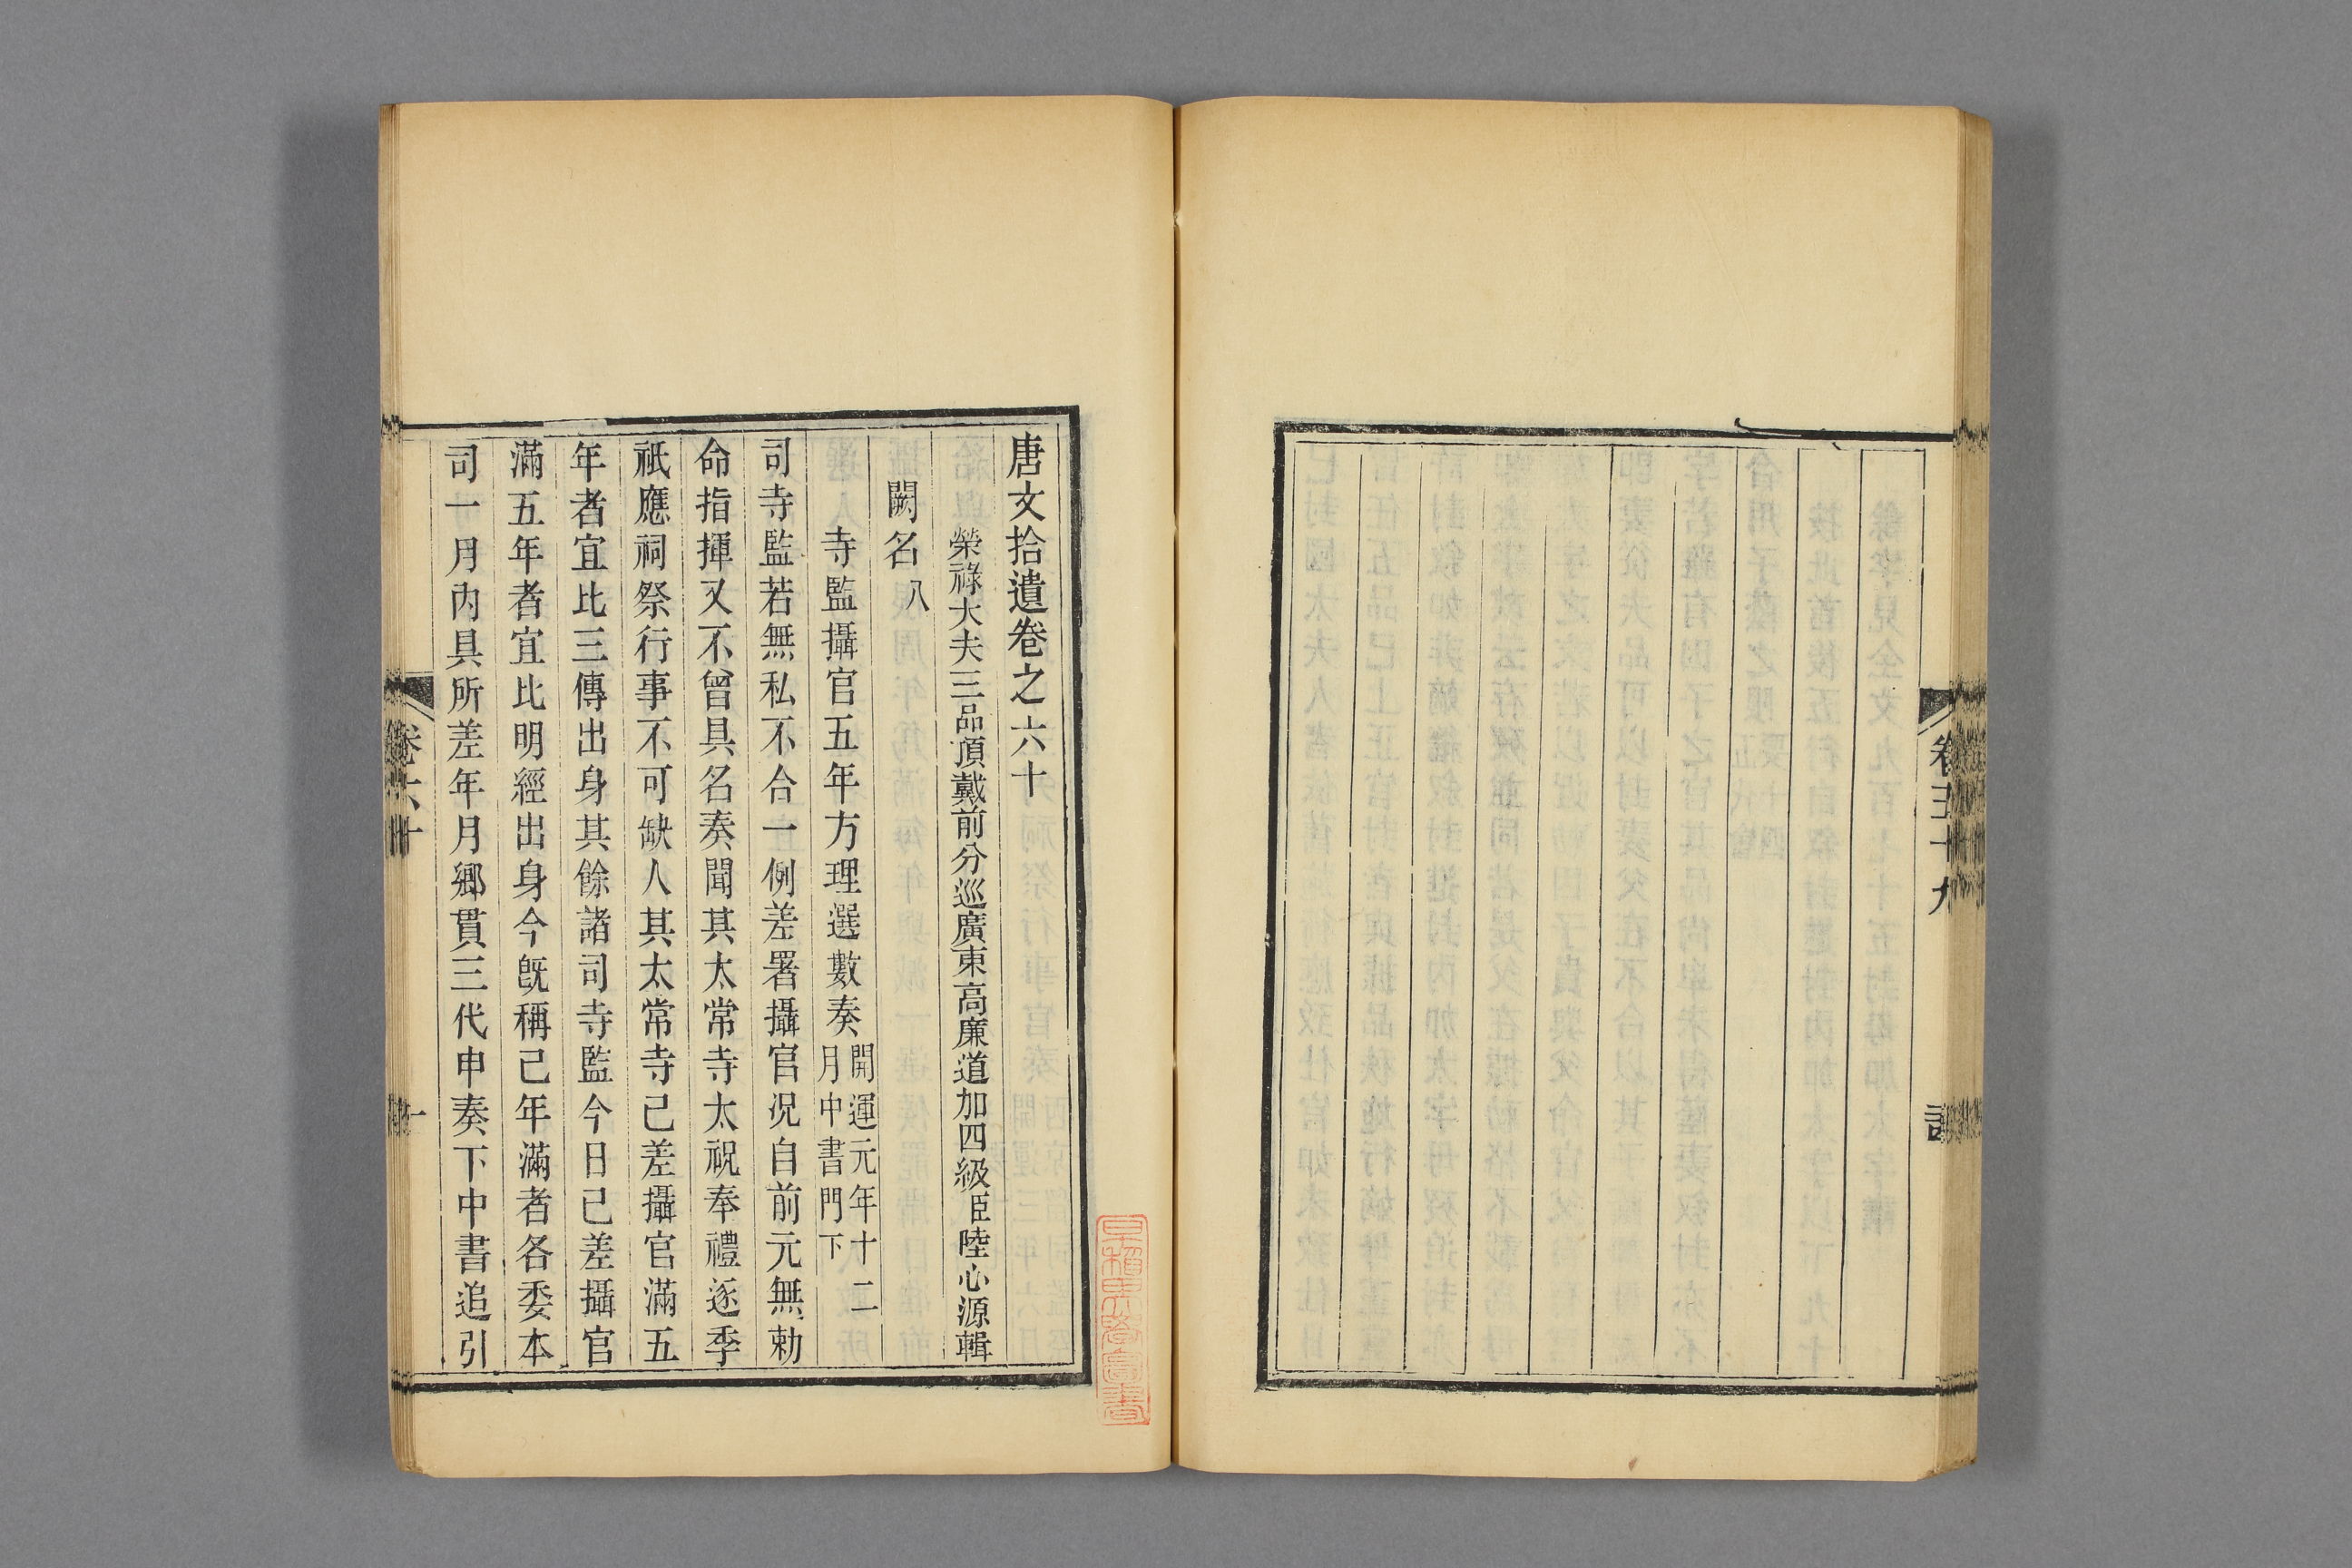 卷五十九
唐文拾遺卷之六十
榮祿大夫三品頂戴前分巡廣東高廉道加四級臣陸心源輯
闕名八
寺監攝官五年方理選數奏開運元年十二月中書門下
司寺監若無私不合一例差署攝官況自前元無勅
命指揮又不曾具名奏聞其太常寺太祝奉禮逐季
祇應祠祭行事不可缺人其太常寺己差攝官滿五
年者宜比三傳出身其餘諸司寺監今日己差攝官
滿五年者宜比明經出身今旣稱己年滿者各委本
司一月內具所差年月鄉貫三代申奏下中書追引
卷六十
一